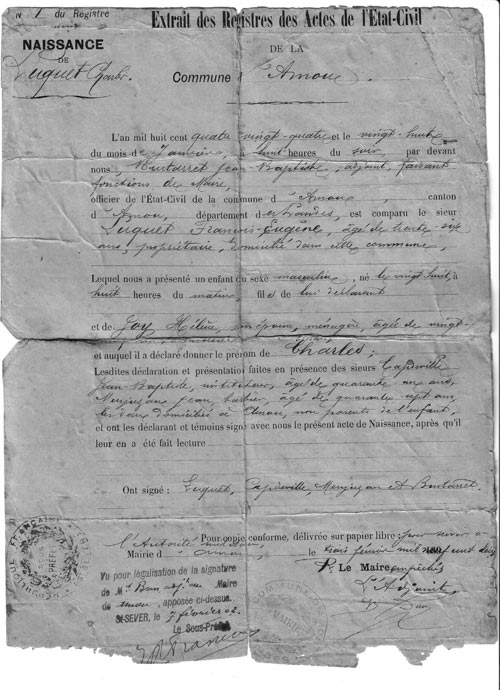 N° 1 du Registre
Extrait des Registres des Actes de l'État-Civil
NAISSANCE
DE
DE LA
Commune d'Amou
L'an mil huit cent quatre vingt-quatre et le vingt-huit
du mois de Janvier, à huit heures du soir, par devant
nous, Jean-Baptiste, adjoint, faisant
fonctions de Maire,
officier de l'État-Civil de la commune d'Amou, canton
d'Amou, département des Landes, est comparu le sieur
François-Eugène, âgé de trente
ans, propriétaire, domicilié dans cette commune,
Lequel nous a présenté un enfant du sexe masculin, né le vingt huit, à
huit heures du matin, fils de lui déclarant
et de son épouse, ménagère, âgée de vingt-
et auquel il a déclaré donner le prénom de Charles;
Lesdites déclaration et présentation faites en présence des sieurs Capdeville
Jean-Baptiste, âgé de quarante ans,
Jean, âgé de quarante sept ans,
les deux domiciliés à Amou, non parents de l'enfant,
et ont les déclarant et témoins signé avec nous le présent acte de Naissance, après qu'il
leur en a été fait lecture
Ont signé : Capdeville,
Pour copie conforme, délivrée sur papier libre pour servir à
l'Autorité
Mairie d'Amou, le trois février mil neuf cent deux
P. Le Maire empêché
L'Adjoint
Vu pour légalisation de la signature
de M. Maire
de Amou, apposée ci-dessus.
St-SEVER, le 7 février 02
Le Sous-Préfet